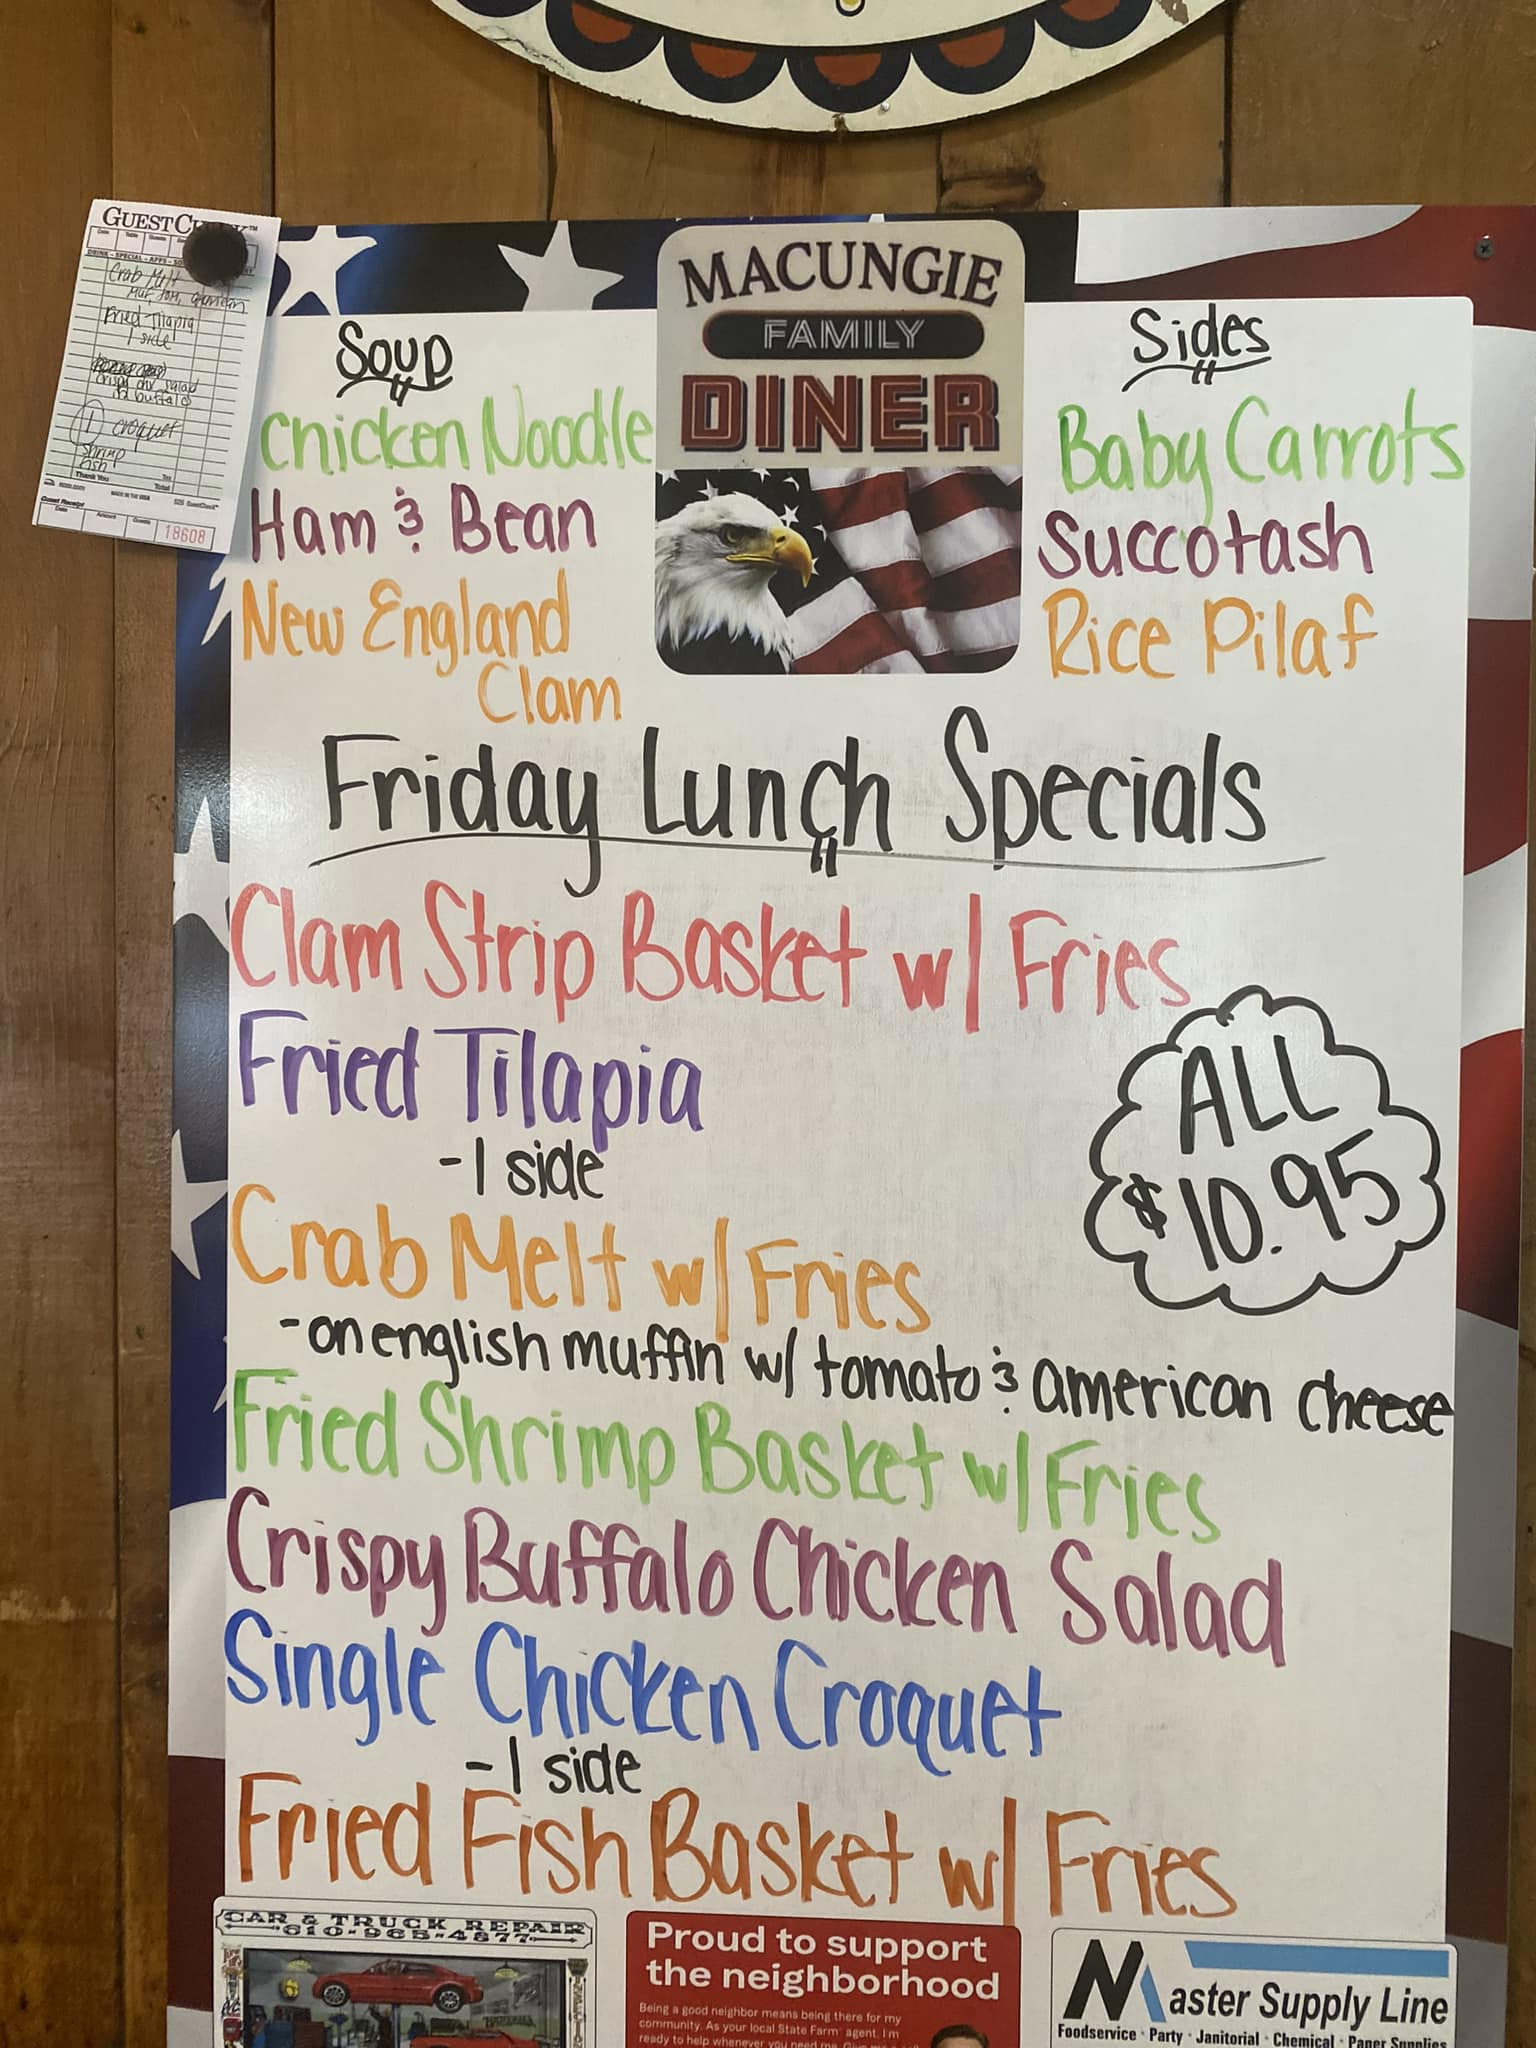 GUESTCHECK™
Date Table Guests
Crab Melt
Muf, tom, american
Fried Tilapia
1 side
Crispy chx salad
buffalo
1 croquet
Shrimp
Fish
Thank You
Tax
Total
MADE IN THE USA
Guest Receipt
Date Amount Guests
18608
MACUNGIE
FAMILY
DINER
Soup
Chicken Noodle
Ham & Bean
New England
Clam
Sides
Baby Carrots
Succotash
Rice Pilaf
Friday Lunch Specials
Clam Strip Basket w/ Fries
Fried Tilapia
-1 side
Crab Melt w/ Fries
-on english muffin w/ tomato & american cheese
Fried Shrimp Basket w/ Fries
Crispy Buffalo Chicken Salad
Single Chicken Croquet
-1 side
Fried Fish Basket w/ Fries
ALL
$10.95
CAR & TRUCK REPAIR
610-965-4877
Proud to support
the neighborhood
Being a good neighbor means being there for my
community. As your local State Farm agent, I'm
ready to help whenever you need me.
Master Supply Line
Foodservice · Party · Janitorial · Chemical · Paper Supplies